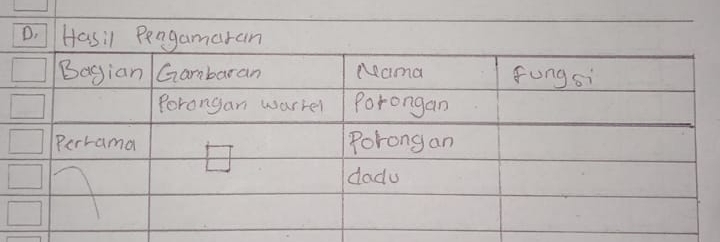 D. Hasil Pengamatan
Bagian Gambaran Nama Fungsi
Potongan wartel Potongan
Pertama Potongan
dadu